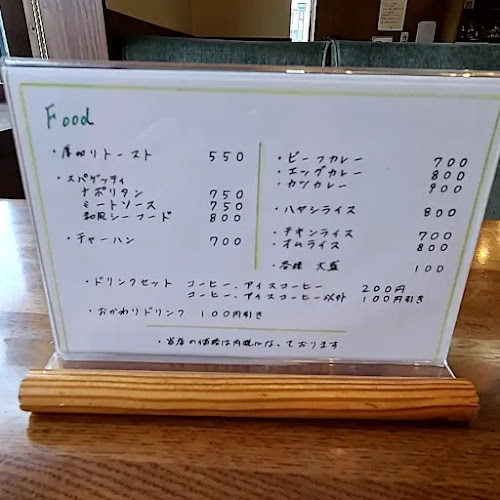 Food
・厚切りトースト 550
・スパゲッティ
ナポリタン 750
ミートソース 750
和風シーフード 800
・チャーハン 700
・ビーフカレー 700
・エッグカレー 800
・カツカレー 900
・ハヤシライス 800
・チキンライス 700
・オムライス 800
・各種 大盛 100
・ドリンクセット コーヒー、アイスコーヒー 200円
コーヒー、アイスコーヒー以外 100円引き
・おかわりドリンク 100円引き
・当店の価格は内税になっております